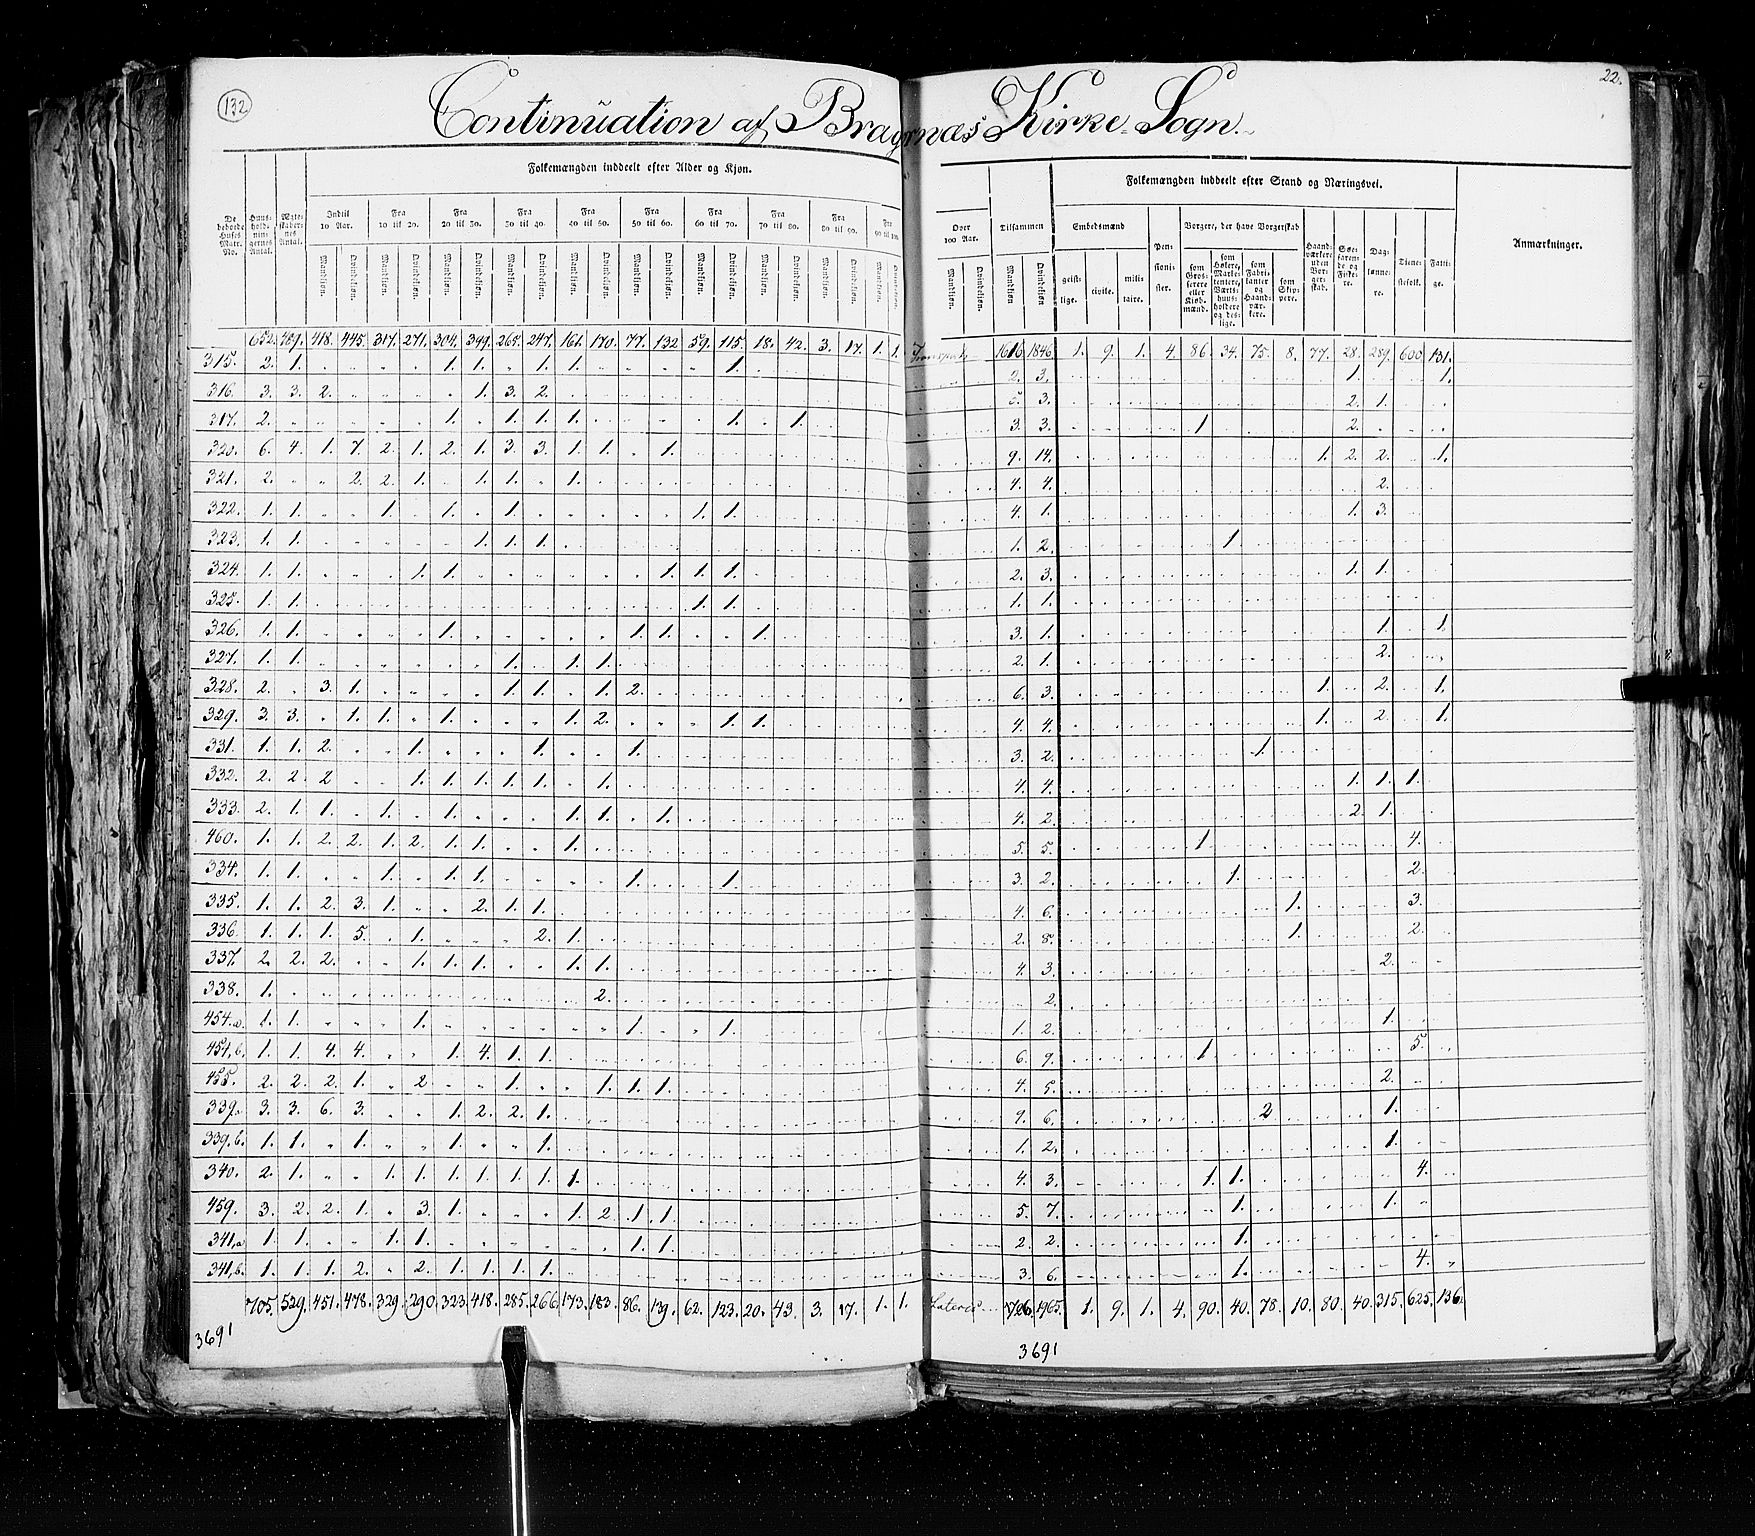 132
22.
Continuation af Bragernæs Kirke-Sogn.
Folkemængden inddeelt efter Alder og Kjøn.
Folkemængden inddeelt efter Stand og Næringsvei.
Anmærkninger.
Indtil 10 Aar. Fra 10 til 20. Fra 20 til 30. Fra 30 til 40. Fra 40 til 50. Fra 50 til 60. Fra 60 til 70. Fra 70 til 80. Fra 80 til 90. Fra 90 til 100. Over 100 Aar. Tilsammen
Embedsmænd Borgere, der have Borgerskab
De beboede Huses Matr. No. Huus-hold-nin-gernes Antal. Ægte-skaber-nes Antal. Mandkjøn Qvindekjøn
geist-lige. civile. mili-taire. Pen-sioni-ster. som Gros-serere eller Kjøb-mænd. som Høkere, Marke-tentere, Værts-huus-holdere og des-lige. som Fabri-kanter og Haand-vær-kere. som Skip-pere. Haand-værkere uden Bor-ger-skab. Søe-farem-de og Fiske-re. Dag-lønne-re. Tiene-stefolk. Fatti-ge.
652. 489. 418. 445. 317. 271. 304. 399. 265. 247. 161. 170. 77. 132 59. 115. 18. 42. 3. 17. 1. 1. Transport 1616 1846 1. 9. 1. 4. 86. 34. 75. 8. 77. 28. 289. 600 131.
315. 2. 1. 1. 1. 1. 1. 1. 2. 3. 1. 1.
316. 3. 3. 2. 1. 3. 2. 5. 3. 2. 1.
317. 2. 1. 1. 1. 1. 1. 1. 3. 3. 1 2.
320. 6. 4. 1. 7. 2. 1. 2. 1. 3. 3. 1. 1. 1. 9. 14. 1. 2. 2. 1.
321. 2. 2. 2. 1. 1. 1. 1. 4. 4. 2.
322. 1. 1. 1. 1. 1. 1. 1. 4. 1. 1. 3.
323. 1. 1. 1. 1. 1. 1. 2. 1.
324. 1. 1. 1. 1. 1. 1. 1. 2. 3. 1. 1.
325. 1. 1. 1. 1. 1. 1.
326. 1. 1. 1. 1. 1. 1. 3. 1. 1. 1.
327. 1. 1. 1. 1. 1. 2. 1. 2.
328. 2. 3. 1. 1. 1. 1. 2. 6. 3. 1. 2. 1.
329. 3. 3. 1. 1. 1. 1. 2. 1. 1. 4. 4. 1. 2. 1.
331. 1. 1. 2. 1. 1. 1. 3. 2. 1.
332. 2. 2 2 1. 1. 1. 1. 1. 1. 4. 4. 1. 1. 1.
333. 2. 1. 1. 1. 1. 1. 1. 1. 4. 2. 2. 1.
460. 1. 1. 2. 2. 1. 2. 1. 1. 1. 5. 5. 1. 4.
334. 1. 1. 1. 1. 1. 1. 1. 3. 2. 1. 2.
335. 1. 1. 2. 3. 1. 2. 1. 1. 4. 6. 1. 3.
336. 1. 1. 1. 5. 1. 2. 1. 2. 8. 1. 2.
337. 2. 2. 2. 1. 1. 1. 1. 1. 4. 3. 2.
338. 1. 2. 2.
454.a. 1. 1. 1. 1. 1. 1. 2. 1.
454,b. 1. 1. 4. 4. 1. 4. 1. 1. 6. 9. 1. 5.
455. 2. 2. 2. 1. 2. 1. 1. 1. 1. 4. 5. 2.
339.a 3. 3. 6. 3. 1. 2. 2. 1. 9. 6. 2 1.
339.b. 1. 1. 1. 1. 1. 1. 2. 1.
340. 2. 1. 1. 1. 1. 1. 1. 1. 1. 4. 3. 1. 1. 4.
459. 3. 2. 2. 1. 3. 1. 1. 2. 1. 1. 5. 7. 1. 1.
341,a 1. 1. 1. 1. 1. 1. 2. 2. 1.
341,b. 1. 1. 1. 2. 2. 1. 1. 1. 1. 3. 6. 1. 4.
705. 529. 451. 478. 329. 290. 323. 418. 285. 266. 173. 183. 86. 139. 62. 123. 20. 43. 3. 17. 1. 1. Lateris 1965. 1. 9. 1. 4. 90. 40. 78. 10. 80. 40. 315. 625. 136.
3691
3691